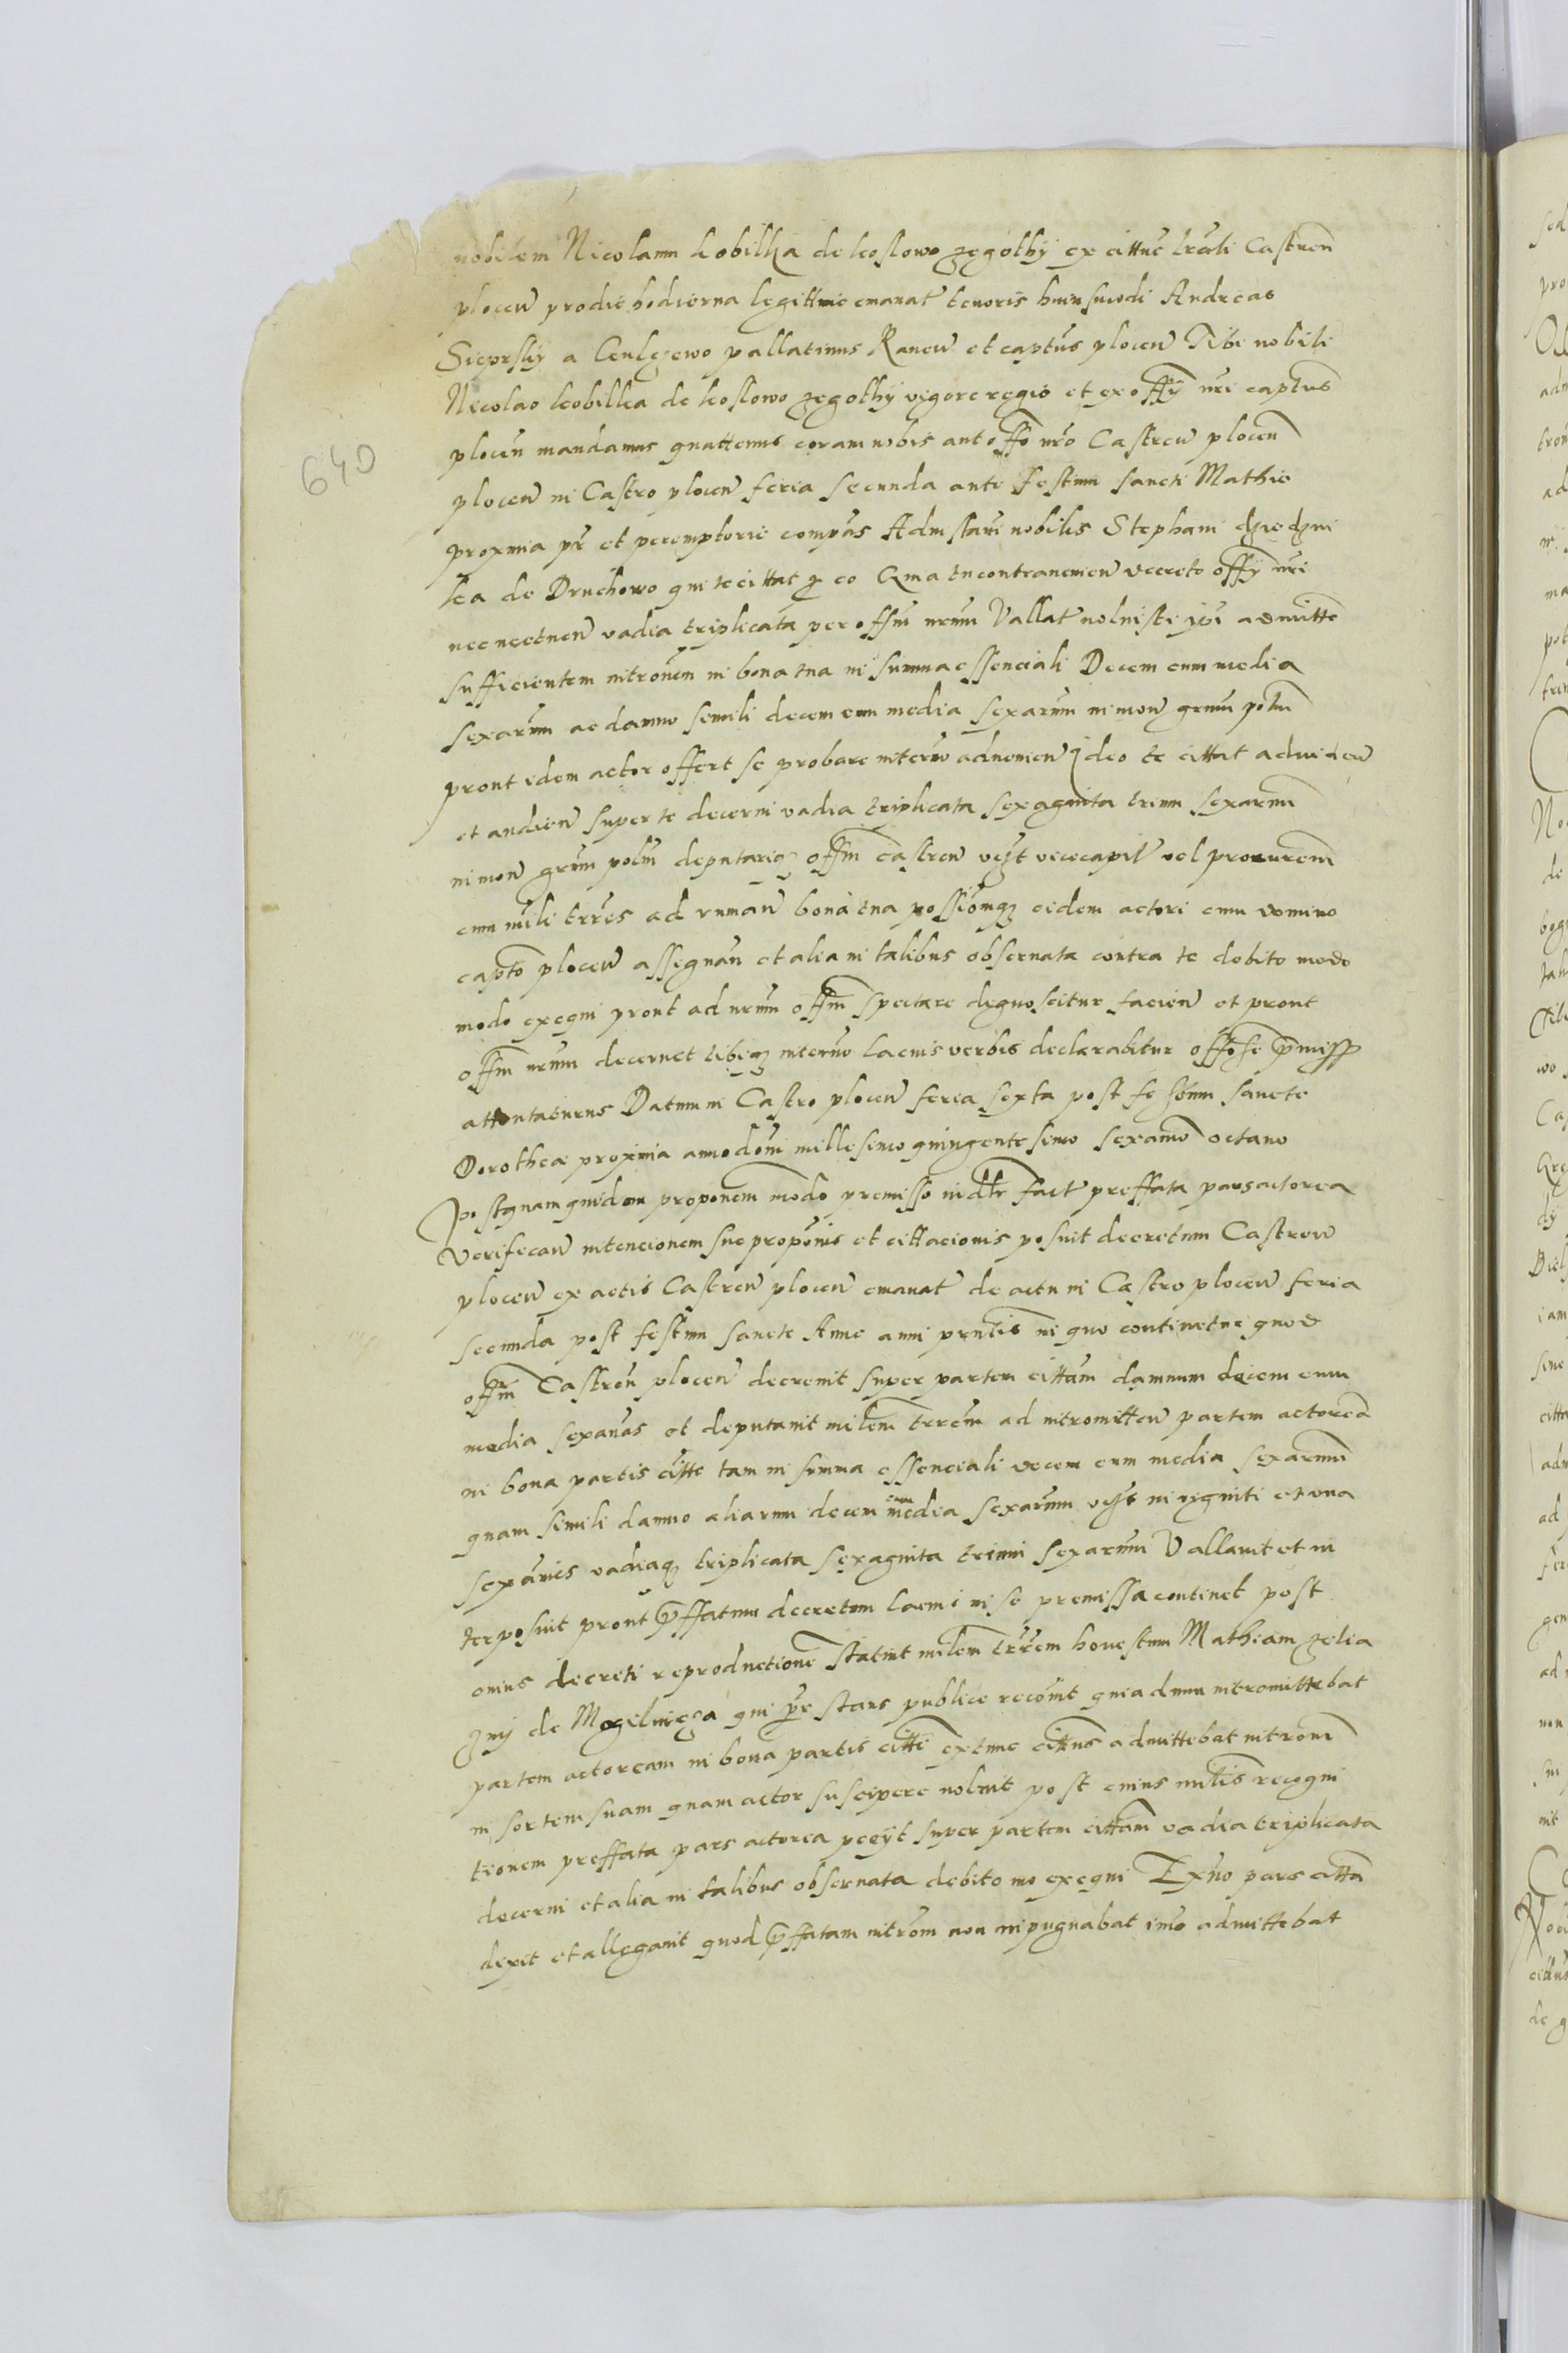 nobilem Nicolaum kobilka de koslowo zegothy ex cittne trali Castren
plocen prodie hodierna legittime emanat tenoris huiusmodi Andreas
Sieprsky a Culczewo pallatinus Raven et captus plocen Tibi nobili
Nicolao kobilka de koslowo zegothy vigore regio et ex offy nri captus
plocen mandamus quattenus coram nobis aut offo nro Castren plocen
plocen in Castro plocen feria secunda ante Festum sancti Mathie
proxima pr et peremptorie compas Ad instam nobilis Stephani dziedzui
ka de Druchowo qui te cittat p eo Qma tu contraneniem decreto offy nri
nec netuen vadia triplicata per offm nrum Vallat noluisti ipi admitte
sufficientem intronem in bona tua in summa essenciali Decem cum media
sexarum ac damno simili decem cum media sexarum in mon grum polm
pront idem actor offert se probare interuo adnemen Ideo te cittat ad viden
et audien super te decerni vadia triplicata sexaginta trium sexarum
in mon grum polm deputariq offm castren vcyt vicecapit vel procurem
cum mili trres ad vnman bona tua possiomq eidem actori cum domino
capto plocen assegnan et alia in talibus obseruata contra te debito modo
modo exequi pront ad nrum offm spectare dignoscitur facien et pront
offm nrum decernet tibiq interuo lacius verbis declarabitur offo se pmissp
attentaturus Datum in Castro plocen feria sexta post festum sancte
Dorothee proxima anno domi millesimo quingentesimo sexamo octauo
Postquam quidem proponem modo premisso in dtr fact preffata pars actorea
Verifecan intencionem sue proponis et cittacionis posuit decretum Castren
plocen ex actis Castren plocen emanat de actu in Castro plocen feria
secunda post festum sancte Anne anni prntis in quo continetur quod
offm Castren plocen decreuit super partem cittam damnum decem cum
media sexanas et deputauit militem trrem ad intromitten partem actorea
in bona partis citte tam in summa essenciali decem cum media sexarum
quam simili damno aliarum decem cum media sexarum vcyt in viginti et vna
sexanies vadiaq triplicata sexaginta trium sexarum Vallauit et in
terposuit pront pffatum decretum lacius in se premissa continet post
cuius decreti reproductione statuit milem trrem honestum Mathiam zelia
zny de Mogelnicza qui pr stans publice recouit quia dum intromittebat
partem actoream in bona partis citte extunc cittus admittebat introm
in sortem suam quam actor suscipere noluit post cuius militis recogni
tionem preffata pars actorea pecyt super partem cittam vadia triplicata
decerni et alia in talibus obseruata debito mo exequi Exuo pars citta
dixit et allegauit quod pffatam introm non inpugnabat imo admittebat
640